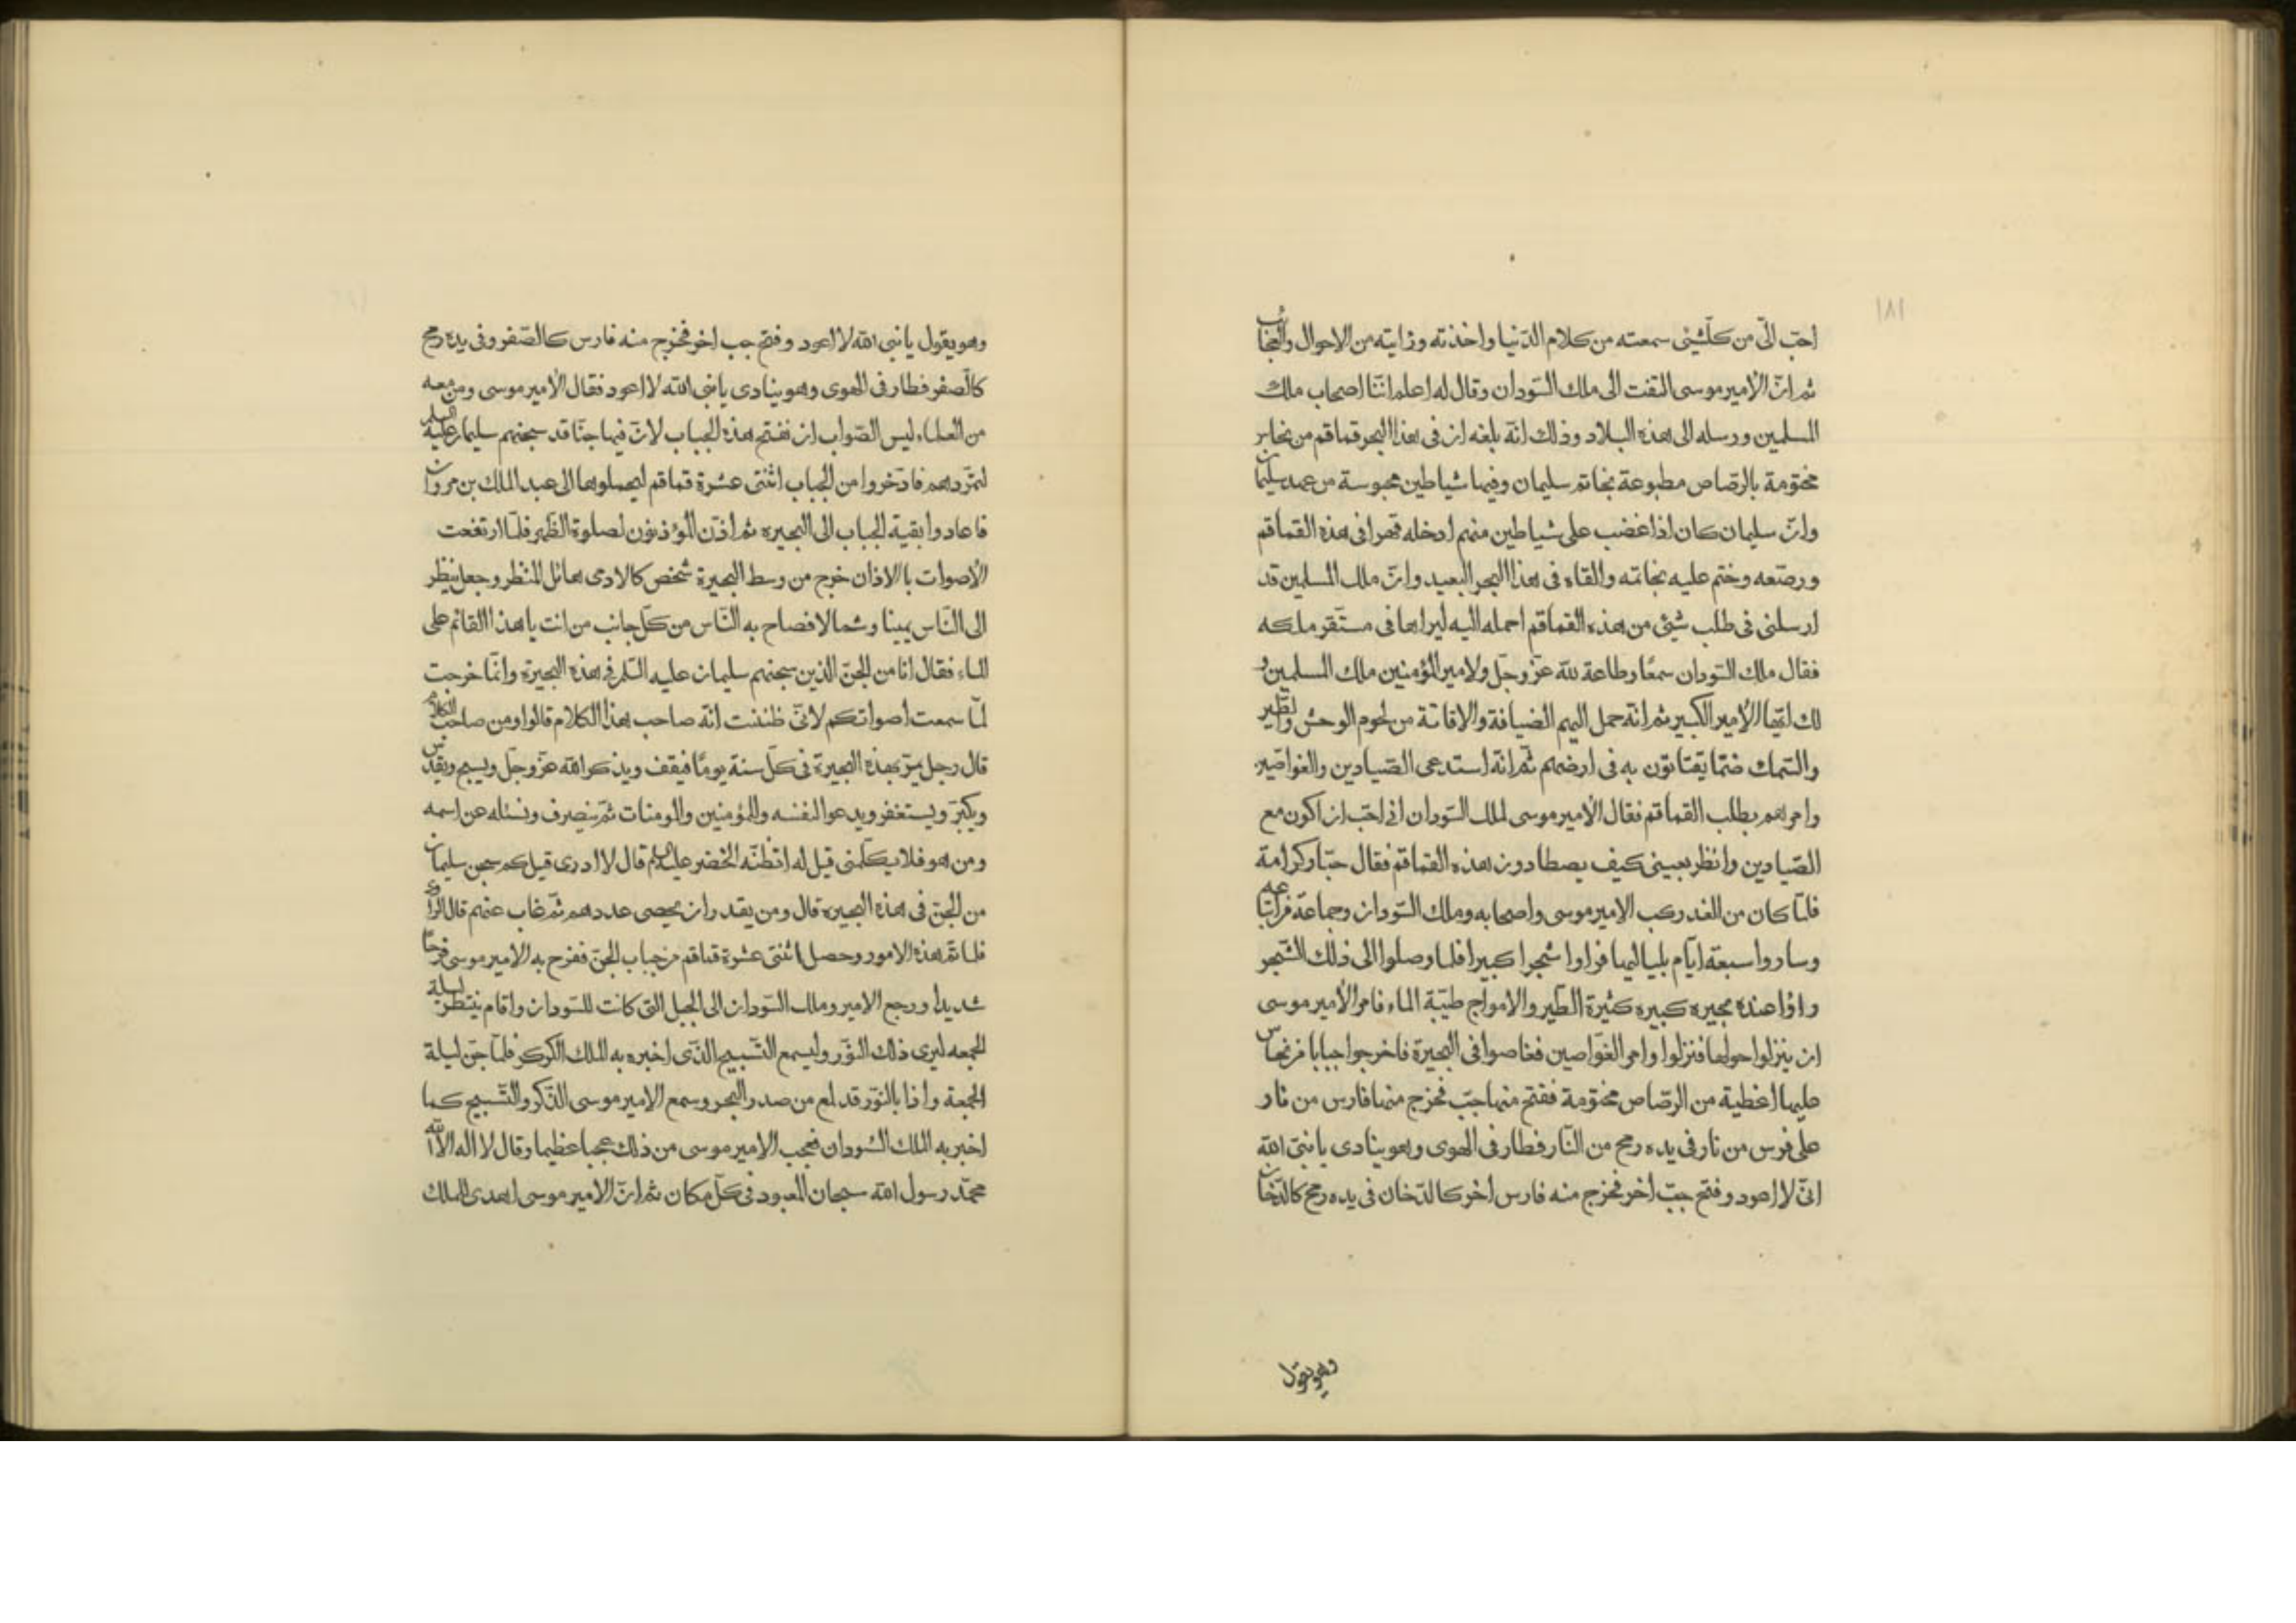 ١٨١
احبّ الىّ من كلّشئى سمعته من كلام الدّنيا واخذته ورايته من الاحوال والعجايب
ثم انّ الأمير موسى التفت الى ملك السّودان وقال له اعلم انّنا اصحاب ملك
المسلمين ورسله الى هذه البلاد وذلك انّه بلغه ان فى هذا البحر قماقم من نحاس
مختومة بالرّصاص مطبوعة بخاتم سليمان وفيها شياطين محبوسة من عهد سليمان
وانّ سليمان كان اذا غضب على شياطين منهم ادخله قهرا فى هذه القماقم
ورصّعه وختم عليه بخاتمه والقاه فى هذا البحر البعيد وانّ ملك المسلمين قد
ارسلنى فى طلب شيئ من هذه القماقم احمله اليه ليراها فى مستقر ملكه
فقال ملك السّودان سمعًا وطاعة لله عزّ وجلّ ولامير المؤمنين ملك المسلمين و
لك ايّها الأمير الكبير ثم انّه حمل اليهم الضيافة والاقامة من لحوم الوحش والطّير
والسّمك ممّا يقتاتون به فى ارضهم ثمّ انّه استدعى الصّيادين والغواصّين
وامرهم بطلب القماقم فقال الأمير موسى لملك السّودان انى احبّ ان اكون مع
الصّيادين وانظر بعينى كيف يصطادون هذه القماقم فقال حبّا وكرامة
فلمّا كان من الغد ركب الامير موسى واصحابه وملك السّودان وجماعة
وساروا سبعة ايّام بلياليها فراوا شجرا كبيرا فلما وصلوا الى ذلك الشّجر
راؤا عنده بحيره كبيره كثيرة الطّير والامواج طيّبة الماء فامر الأمير موسى
ان ينزلوا حولها فنزلوا وامر الغوّاصين فغاصوا فى البحيرة فاخرجوا جبابا من نحاس
عليها اغطية من الرصّاص مختومة ففتح منها جبّ فخرج منها فارس من نار
على فرس من نار فى يده رمح من النّار فطار فى الهوى وهو ينادى يا نبىّ الله
انىّ لا اعود وفتح جبّ اخر فخرج منه فارس اخر كالدّخان فى يده رمح كالدّخان
وهو يقول
وهو يقول يا نبى الله لا اعود وفتح جب اخر فخرج منه فارس كالصّفر وفى يده رمح
كالصّفر فطار فى الهوى وهو ينادى يا نبى الله لا اعود فقال الأمير موسى ومن معه
من العلماء ليس الصّواب ان نفتح هذه الجباب لانّ فيها جنّا قد سجنهم سليمان عليه السلم
لتمرّدهم فادّخروا من الجباب اثنتى عشرة قماقم ليحملوها الى عبد الملك بن مروان
فاعادوا بقية الجباب الى البحيره ثم اذّن المؤذنون لصلوة الظّهر فلمّا ارتفعت
الأصوات بالاذان خرج من وسط البحيرة شخص كالادمى هائل المنظر وجعل ينظر
الى النّاس يمينا وشمالا فصاح به النّاس من كلّ جانب من انت يا هذا القائم على
الماء فقال انا من الجنّ الذين سجنهم سليمان عليه السّلم فى هذه البحيرة وانّما خرجت
لمّا سمعت اصواتكم لانىّ ظننت انّه صاحب هذا الكلام قالوا ومن صاحب الكلام
قال رجل يمرّ بهذه البحيرة فى كلّ سنة يومًا فيقف ويذكر الله عزّ وجلّ ويسبح ويقدّس
ويكبّر ويستغفر ويدعوا لنفسه وللمؤمنين والومنات ثمّ ينصرف ونسئله عن اسمه
ومن هو فلا يكلّمنى قيل له اتظنّه الخضر عليه السلام قال لا ادرى قيل كم سجن سليمان
من الجنّ فى هذه البحيره قال ومن يقدر ان يحصى عددهم ثمّ غاب عنهم قال الراوى
فلما تمّ هذه الامور وحصل اثنتى عشرة قماقم من جباب الجنّ ففرح به الامير موسى فرحًا
شديدا ورجع الامير وملك السّودان الى الجبل التى كانت للسّودان واقام ينتظر ليلة
الجمعه ليرى ذلك النوّر وليسمع التّسبيح الّذى اخبره به الملك الكركر فلمّا جنّ ليلة
الجمعة واذا بالنوّر قد لمع من صدر البحر وسمع الامير موسى الذّكر والتّسبيح كما
اخبر به الملك السّودان فعجب الامير موسى من ذلك عجبا عظيما وقال لا اله الا الله
محمّد رسول الله سبحان المعبود فى كلّ مكان ثم انّ الامير موسى اهدى الملك